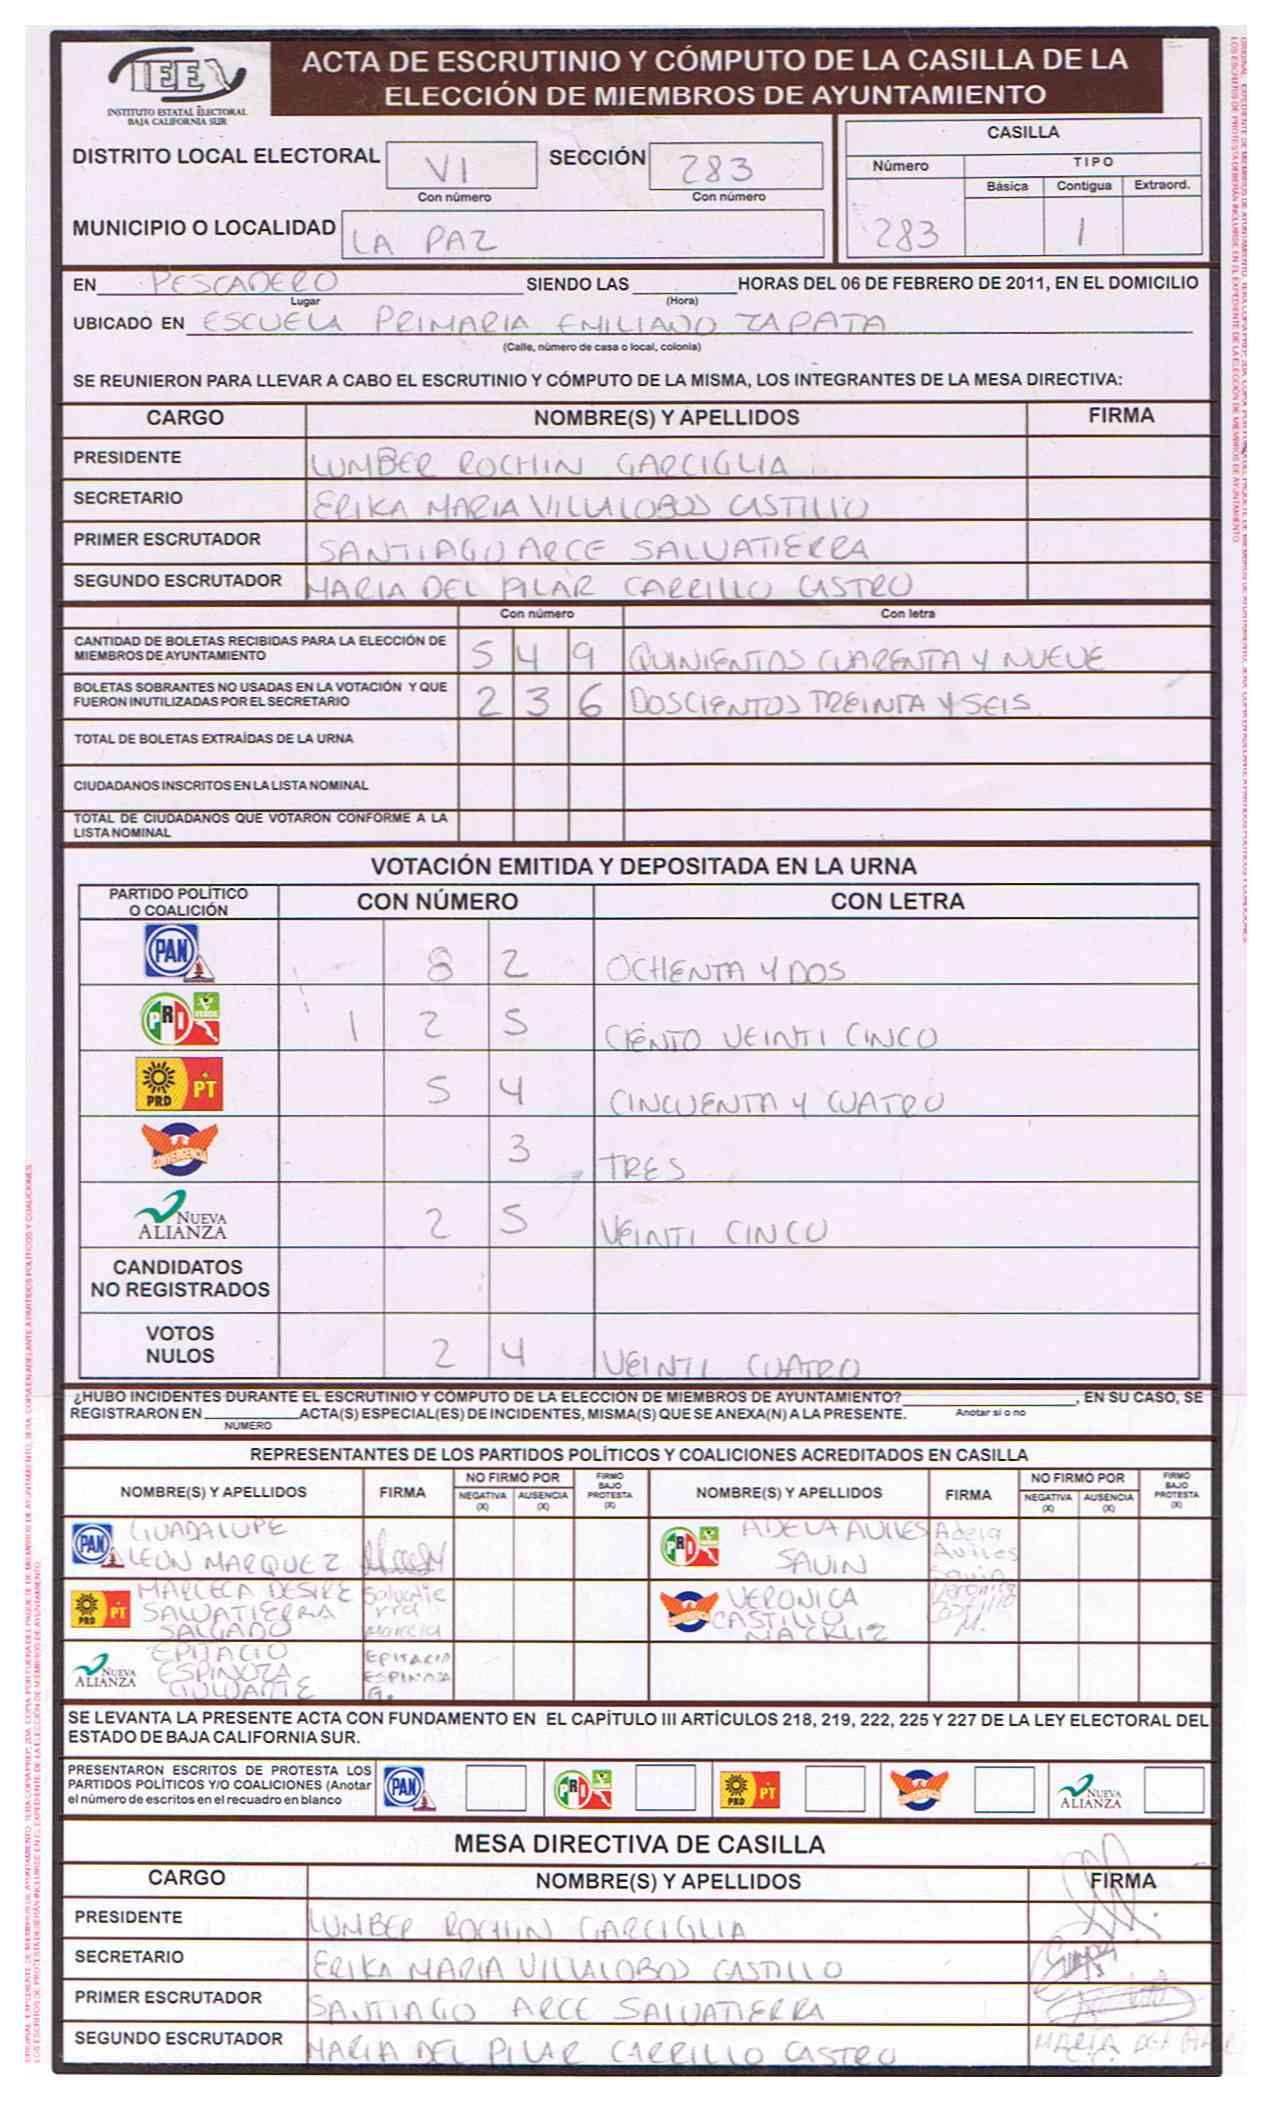 IEEBCS
INSTITUTO ESTATAL ELECTORAL
BAJA CALIFORNIA SUR
ACTA DE ESCRUTINIO Y CÓMPUTO DE LA CASILLA DE LA
ELECCIÓN DE MIEMBROS DE AYUNTAMIENTO
DISTRITO LOCAL ELECTORAL VI SECCIÓN 283
Con número Con número
MUNICIPIO O LOCALIDAD LA PAZ
CASILLA
Número TIPO
Básica Contigua Extraord.
283 1
EN PESCADERO SIENDO LAS HORAS DEL 06 DE FEBRERO DE 2011, EN EL DOMICILIO
Lugar (Hora)
UBICADO EN ESCUELA PRIMARIA EMILIANO ZAPATA
(Calle, número de casa o local, colonia)
SE REUNIERON PARA LLEVAR A CABO EL ESCRUTINIO Y CÓMPUTO DE LA MISMA, LOS INTEGRANTES DE LA MESA DIRECTIVA:
CARGO NOMBRE(S) Y APELLIDOS FIRMA
PRESIDENTE LUMBER ROCHIN GARCIGLIA
SECRETARIO ERIKA MARIA VILLALOBOS CASTILLO
PRIMER ESCRUTADOR SANTIAGO ARCE SALVATIERRA
SEGUNDO ESCRUTADOR MARIA DEL PILAR CARRILLO CASTRO
Con número Con letra
CANTIDAD DE BOLETAS RECIBIDAS PARA LA ELECCIÓN DE
MIEMBROS DE AYUNTAMIENTO 5 4 9 QUINIENTOS CUARENTA Y NUEVE
BOLETAS SOBRANTES NO USADAS EN LA VOTACIÓN Y QUE
FUERON INUTILIZADAS POR EL SECRETARIO 2 3 6 DOSCIENTOS TREINTA Y SEIS
TOTAL DE BOLETAS EXTRAÍDAS DE LA URNA
CIUDADANOS INSCRITOS EN LA LISTA NOMINAL
TOTAL DE CIUDADANOS QUE VOTARON CONFORME A LA
LISTA NOMINAL
VOTACIÓN EMITIDA Y DEPOSITADA EN LA URNA
PARTIDO POLÍTICO
O COALICIÓN CON NÚMERO CON LETRA
PAN 8 2 OCHENTA Y DOS
PRI VERDE 1 2 5 CIENTO VEINTI CINCO
PRD PT 5 4 CINCUENTA Y CUATRO
CONVERGENCIA 3 TRES
NUEVA ALIANZA 2 5 VEINTI CINCO
CANDIDATOS
NO REGISTRADOS
VOTOS
NULOS 2 4 VEINTI CUATRO
¿HUBO INCIDENTES DURANTE EL ESCRUTINIO Y CÓMPUTO DE LA ELECCIÓN DE MIEMBROS DE AYUNTAMIENTO? , EN SU CASO, SE
REGISTRARON EN ACTA(S) ESPECIAL(ES) DE INCIDENTES, MISMA(S) QUE SE ANEXA(N) A LA PRESENTE. Anotar si o no
NÚMERO
REPRESENTANTES DE LOS PARTIDOS POLÍTICOS Y COALICIONES ACREDITADOS EN CASILLA
NOMBRE(S) Y APELLIDOS FIRMA NO FIRMÓ POR NEGATIVA (X) AUSENCIA (X) FIRMÓ BAJO PROTESTA (X) NOMBRE(S) Y APELLIDOS FIRMA NO FIRMÓ POR NEGATIVA (X) AUSENCIA (X) FIRMÓ BAJO PROTESTA (X)
PAN GUADALUPE
LEON MARQUEZ
PRI ADELA AVILES
SAVIN
Adela
Aviles
Savin
PRD PT MARLECA DESIRE
SALVATIERRA
SALGADO
Salvatie
rra
CONVERGENCIA VERONICA
CASTILLO
Veronica
Castillo
M.
NUEVA ALIANZA EPITACIO
ESPINOZA
EPITACIO
ESPINOZA
G.
SE LEVANTA LA PRESENTE ACTA CON FUNDAMENTO EN EL CAPÍTULO III ARTÍCULOS 218, 219, 222, 225 Y 227 DE LA LEY ELECTORAL DEL
ESTADO DE BAJA CALIFORNIA SUR.
PRESENTARON ESCRITOS DE PROTESTA LOS
PARTIDOS POLÍTICOS Y/O COALICIONES (Anotar
el número de escritos en el recuadro en blanco
PAN PRI PRD PT CONVERGENCIA NUEVA ALIANZA
MESA DIRECTIVA DE CASILLA
CARGO NOMBRE(S) Y APELLIDOS FIRMA
PRESIDENTE LUMBER ROCHIN GARCIGLIA
SECRETARIO ERIKA MARIA VILLALOBOS CASTILLO
PRIMER ESCRUTADOR SANTIAGO ARCE SALVATIERRA
SEGUNDO ESCRUTADOR MARIA DEL PILAR CARRILLO CASTRO MARIA DEL PILAR